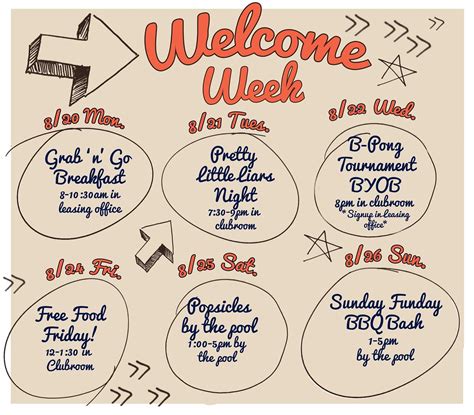 Welcome
Week
8/20 Mon.
Grab 'n' Go
Breakfast
8-10:30am in
leasing office
8/21 Tues.
Pretty
Little Liars
Night
7:30-9pm in
clubroom
8/22 Wed.
B-Pong
Tournament
BYOB
8pm in clubroom
*Signup in Leasing
office*
8/24 Fri.
Free Food
Friday!
12-1:30 in
Clubroom
8/25 Sat.
Popsicles
by the pool
1:00-5pm by
the pool
8/26 Sun.
Sunday Funday
BBQ Bash
1-5pm
by the pool